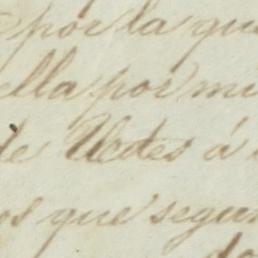 por la que
ella por mi
de Uctes á
os que segun